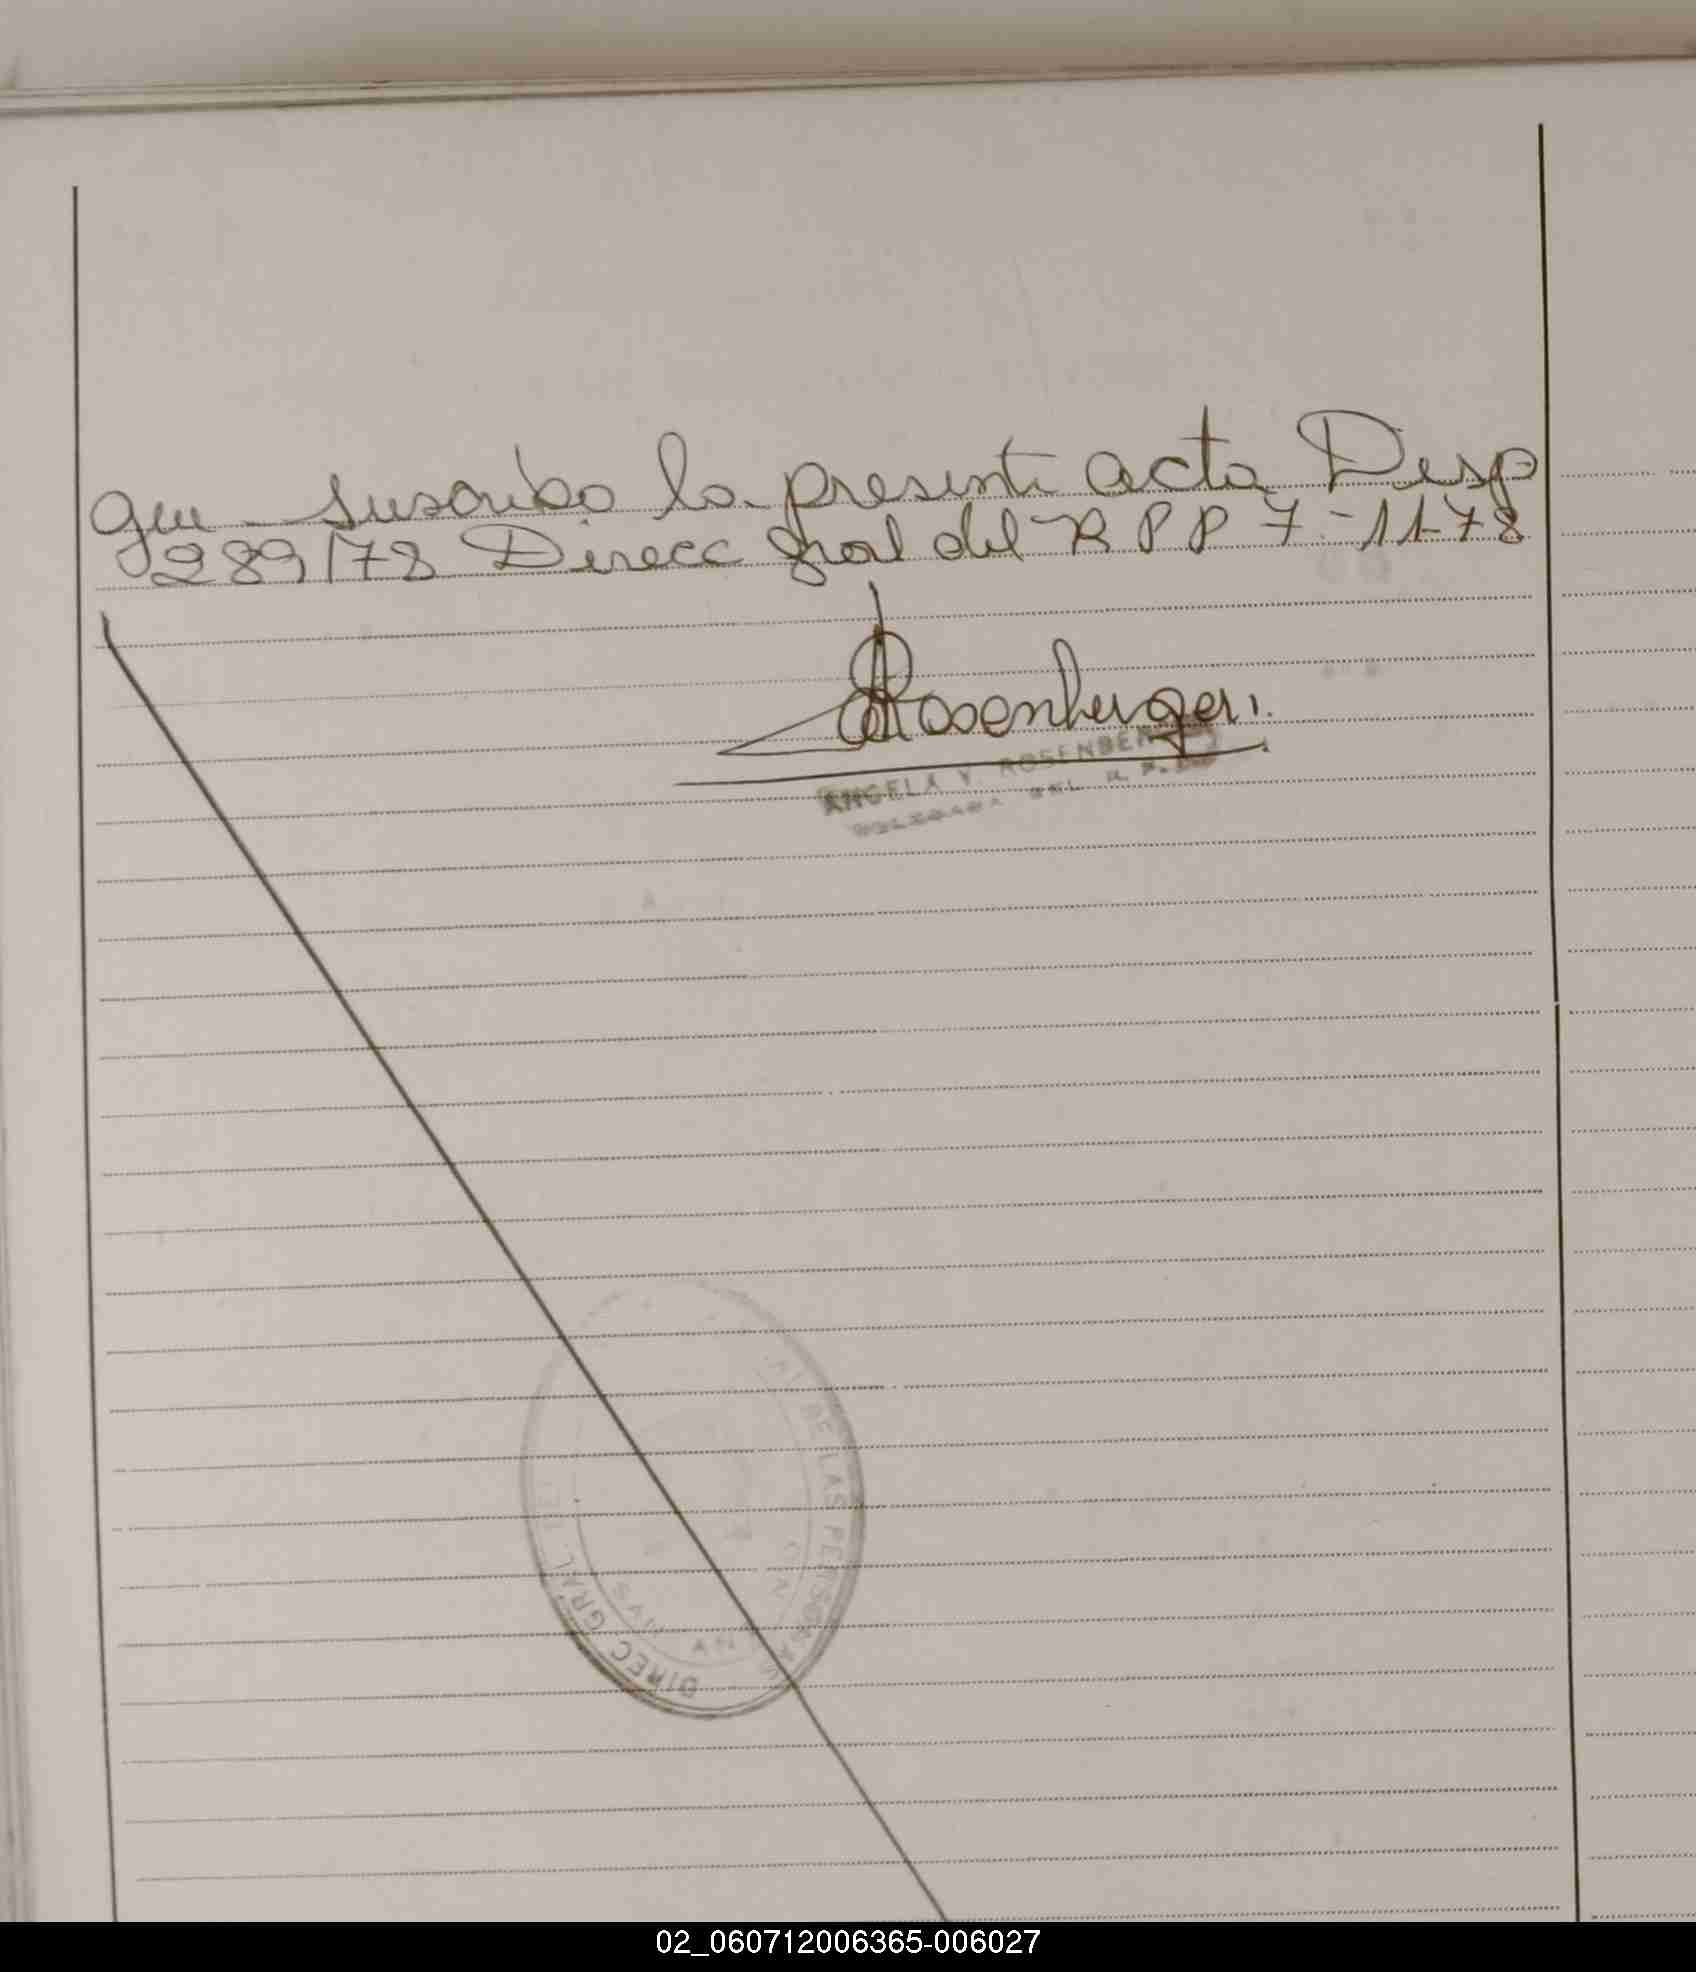 que suscribo la presente acta Desp
289/78 Direcc Gral del R P P 7-11-78
Rosenberger.
ANGELA V. ROSENBER
DEL R. P.
DIREC GRAL. DE LAS PERSONAS
SAN
02_060712006365-006027